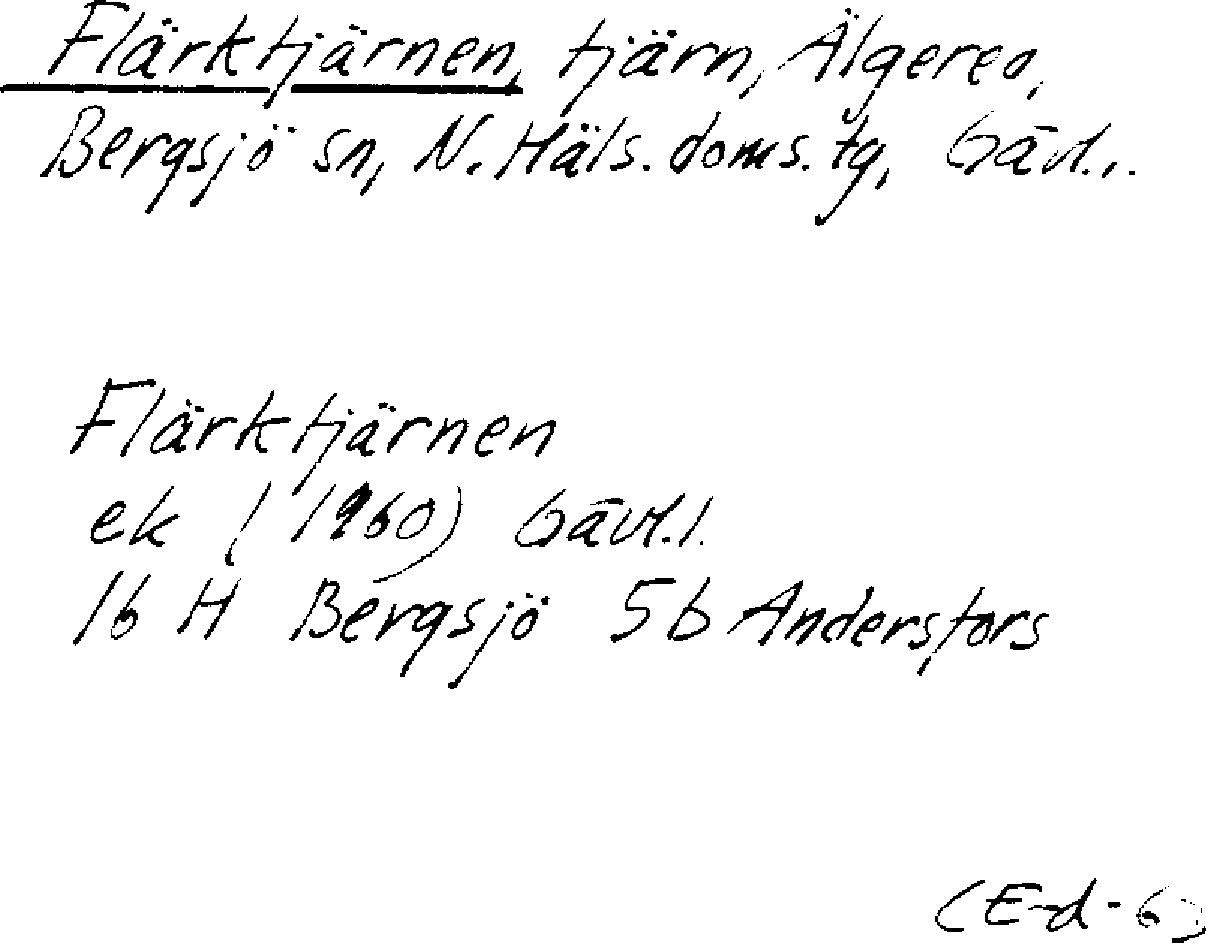 Flärktjärnen, tjärn, Älgered,
Bergsjö sn, N. Häls. doms. tg, Gävl.l.
Flärktjärnen
ek (1960) Gävl.l.
16 H Bergsjö 5b Andersfors
(E-d-6)